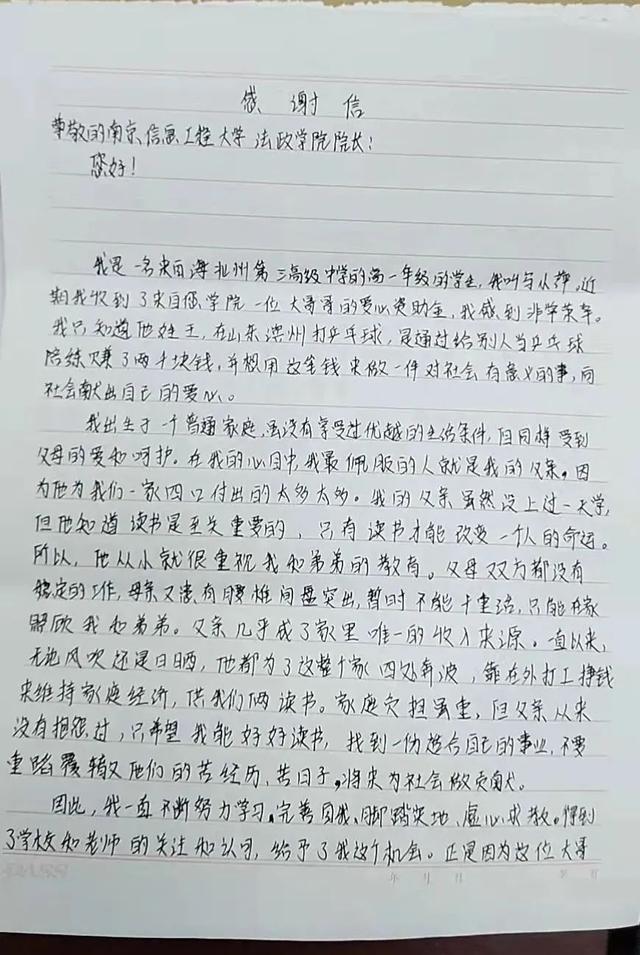 感谢信
尊敬的南京信息工程大学法政学院院长:
您好!
我是一名来自海州第三高级中学的高一年级的学生,我叫 近
期我收到了来自您学院一位大哥哥的爱心资助金,我感到非常荣幸。
我只知道他姓王,在山东滨州打乒乓球,是通过给别人当乒乓球
陪练赚了两千块钱,并想用这笔钱来做一件对社会有意义的事,向
社会献出自己的爱心。
我出生于一个普通家庭,虽没有享受过优越的生活条件,但同样受到
父母的爱和呵护。在我的心目中,我最佩服的人就是我的父亲,因
为他为我们一家四口付出的太多太多。我的父亲虽然没上过一天学,
但他知道读书是至关重要的,只有读书才能改变一个人的命运。
所以,他从小就很重视我和弟弟的教育。父母双方都没有
稳定的工作,母亲又患有腰椎间盘突出,暂时不能干重活,只能在家
照顾我和弟弟。父亲几乎成了家里唯一的收入来源。一直以来,
无论风吹还是日晒,他都为了这整个家四处奔波,靠在外打工挣钱
来维持家庭经济,供我们俩读书。家庭负担虽重,但父亲从来
没有抱怨过,只希望我能好好读书,找到一份适合自己的事业,不要
重蹈覆辙又他们的苦经历、苦日子,将来为社会做贡献。
因此,我一直不断努力学习,完善自我、脚踏实地、虚心求教。得到
了学校和老师的关注和认可,给予了我这个机会。正是因为这位大哥
年 月 日